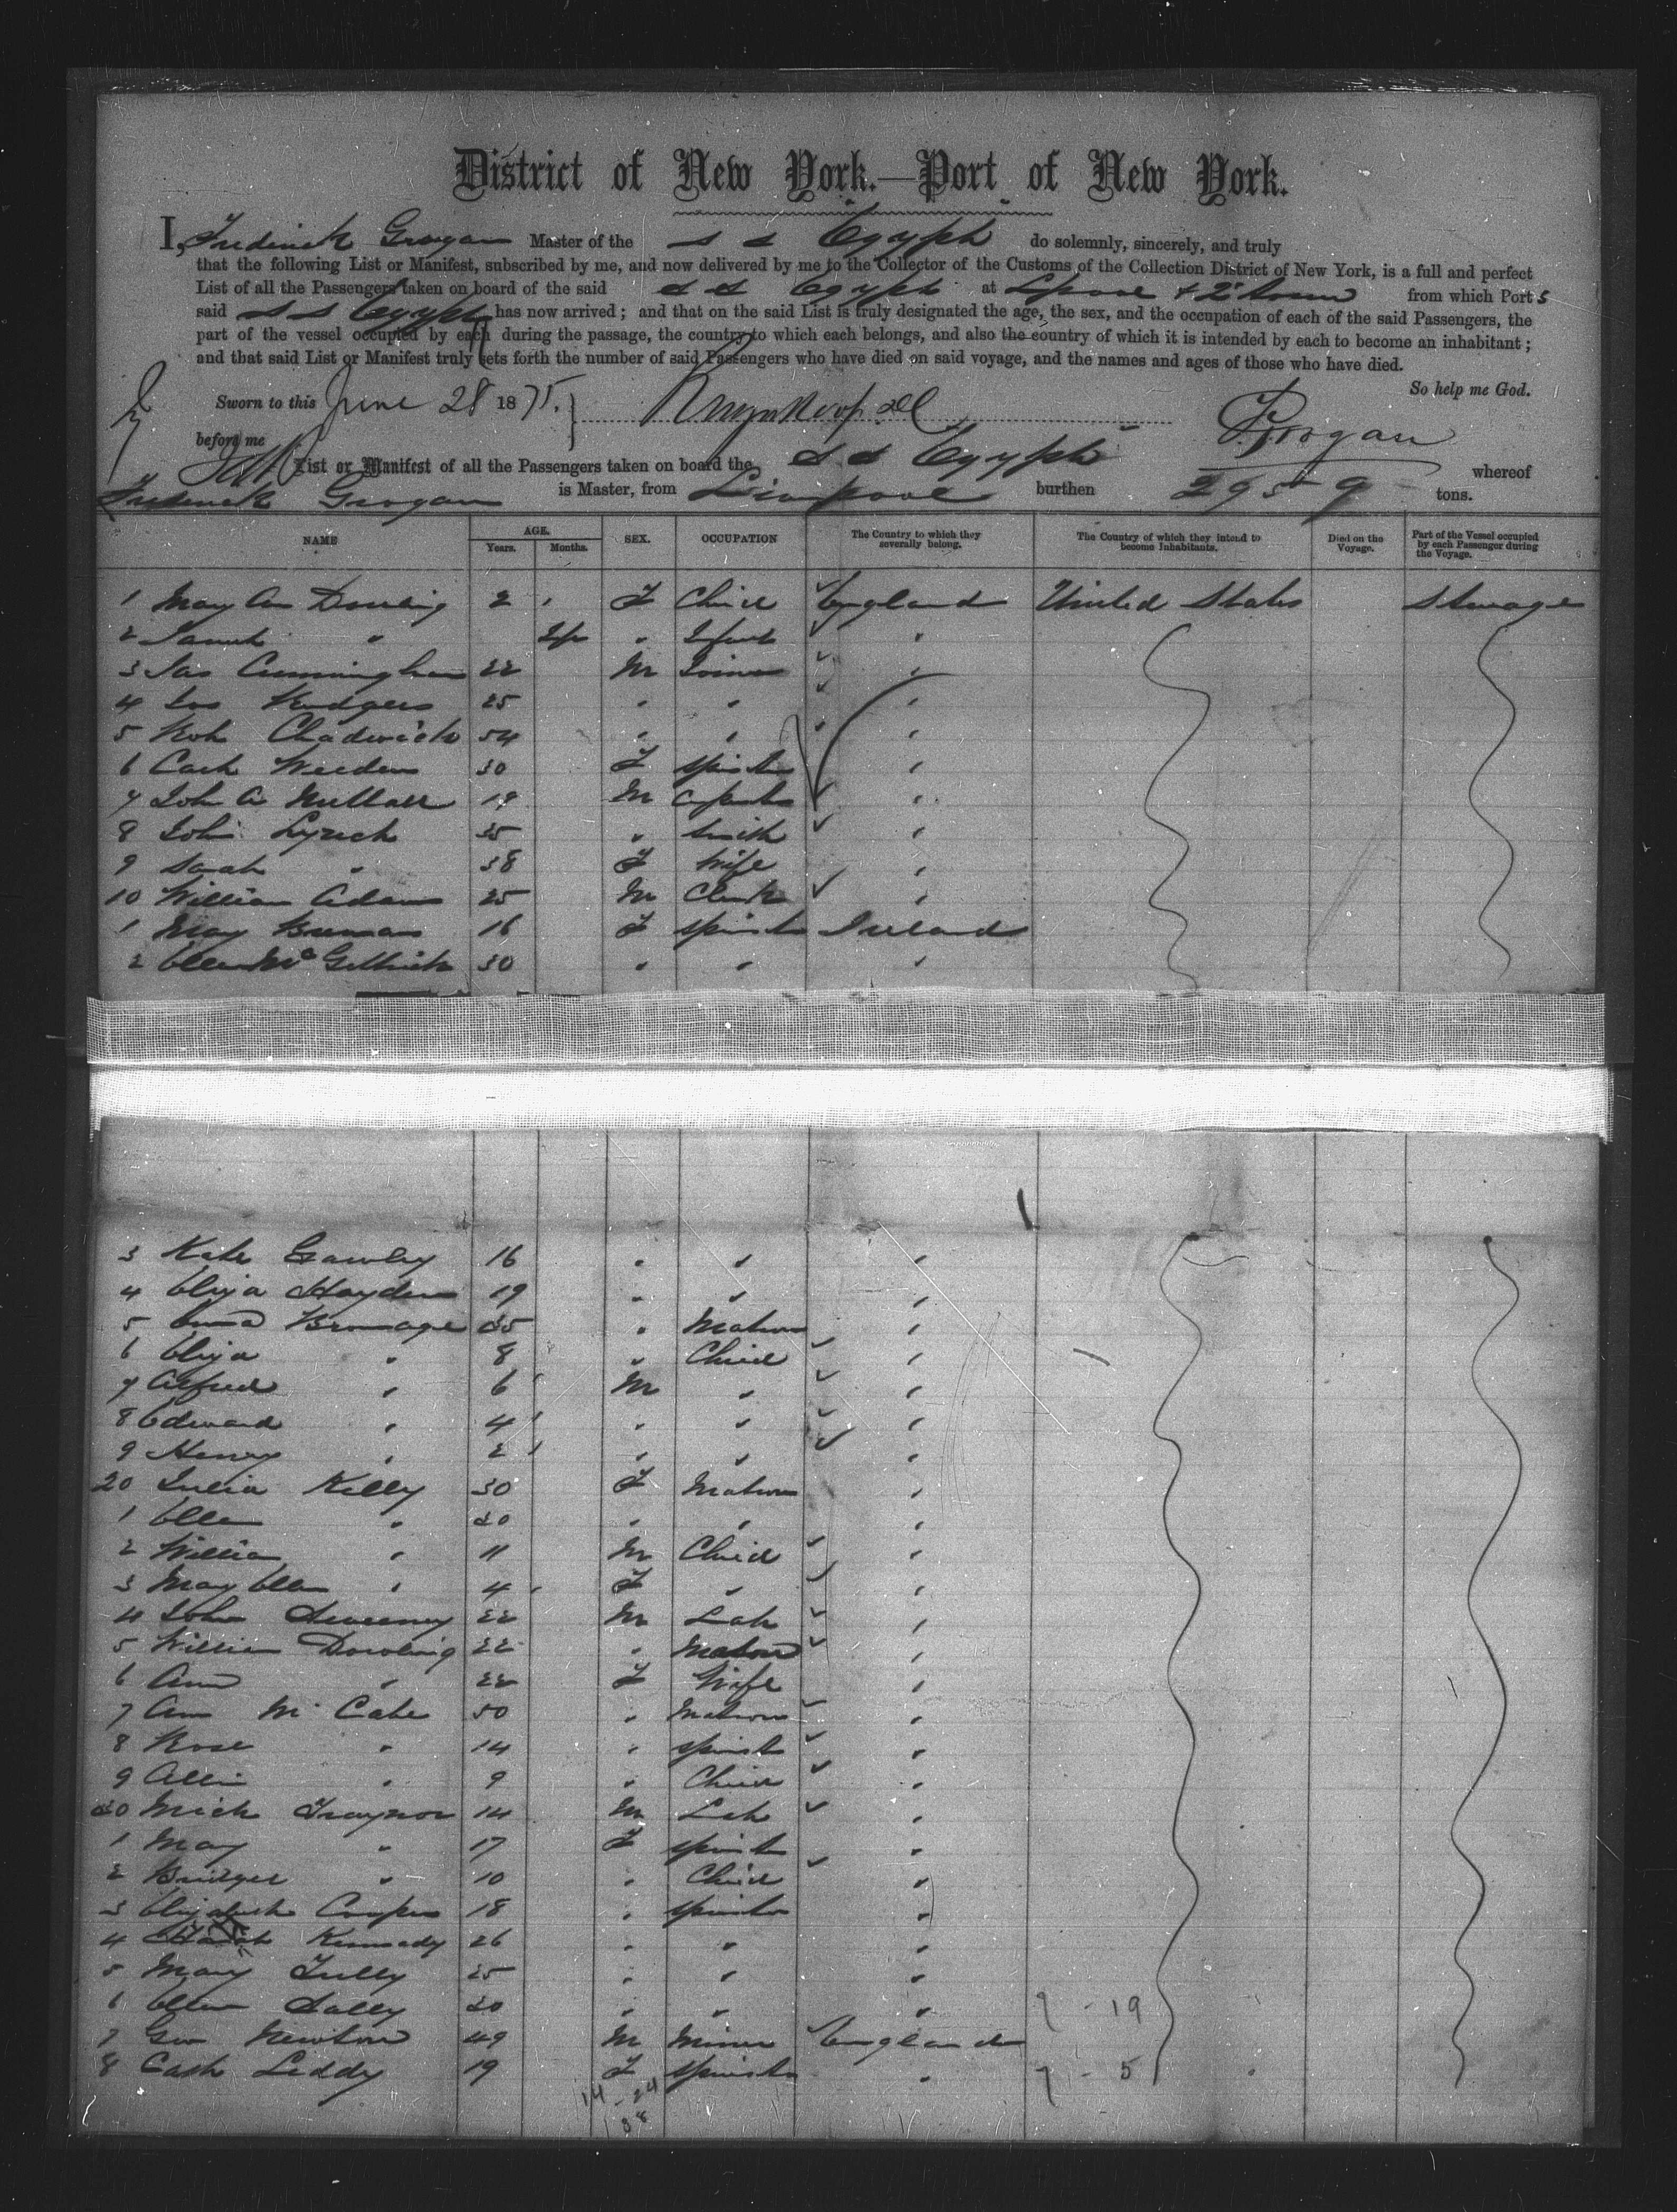 District of New York.—Port of New York.
I, Frederick Grogan Master of the s s Egypt do solemnly, sincerely, and truly
that the following List or Manifest, subscribed by me, and now delivered by me to the Collector of the Customs of the Collection District of New York, is a full and perfect
List of all the Passengers taken on board of the said s s Egypt at Lpool & Q'town from which Port s
said s s Egypt has now arrived; and that on the said List is truly designated the age, the sex, and the occupation of each of the said Passengers, the
part of the vessel occupied by each during the passage, the country to which each belongs, and also the country of which it is intended by each to become an inhabitant;
and that said List or Manifest truly sets forth the number of said Passengers who have died on said voyage, and the names and ages of those who have died.
So help me God.
Sworn to this June 28 1875.
F Grogan
before me
List or Manifest of all the Passengers taken on board the s s Egypt whereof
Frederick Grogan is Master, from Liverpool burthen 2959 tons.
NAME AGE. Years. Months. SEX. OCCUPATION The Country to which they severally belong. The Country of which they intend to become Inhabitants. Died on the Voyage. Part of the Vessel occupied by each Passenger during the Voyage.
1 Mary Ann Dowling 2 F Child England United States Steerage
2 " Inf " Infant "
3 Jas Cunningham 22 M Joiner "
4 Jos Rodgers 25 " " "
5 Rob Chadwick 54 " " "
6 Cath 30 F Spinster "
7 John A Nuttall 19 M Carpenter "
8 John Lynch 35 " Smith "
9 Sarah " 38 F Wife "
10 William Adams 25 M Clerk "
1 Mary Brennan 16 F Spinster Ireland
2 Ellen Mc 30 " " "
3 Kate Gawley 16 " " "
4 Eliza Hayden 19 " " "
5 Bromage 35 " Matron "
6 Eliza " 8 " Child "
7 Alfred " 6 M " "
8 Edward " 4 " " "
9 Henry " 2 " " "
20 Julia Kelly 30 F Matron "
1 Ellen " 20 " " "
2 William " 11 M Child "
3 Mary Ellen " 4 F " "
4 John Sweeney 22 M Lab "
5 William Dowling 22 " "
6 Ann " 22 F Wife "
7 Ann McCabe 50 " Matron "
8 Rose " 14 " Spinster "
9 " 9 " Child "
30 Mick Traynor 14 M Lab "
1 Mary " 17 F Spinster "
2 Bridget " 10 " Child "
3 Elizabeth Cooper 18 " Spinster "
4 Kennedy 26 " " "
5 Mary Tully 25 " " "
6 Ellen Sally 20 " " " 9 - 19
7 Geo Newton 49 M Miner England
8 Cath Leddy 19 F Spinster " 7 - 5
14 - 24
38